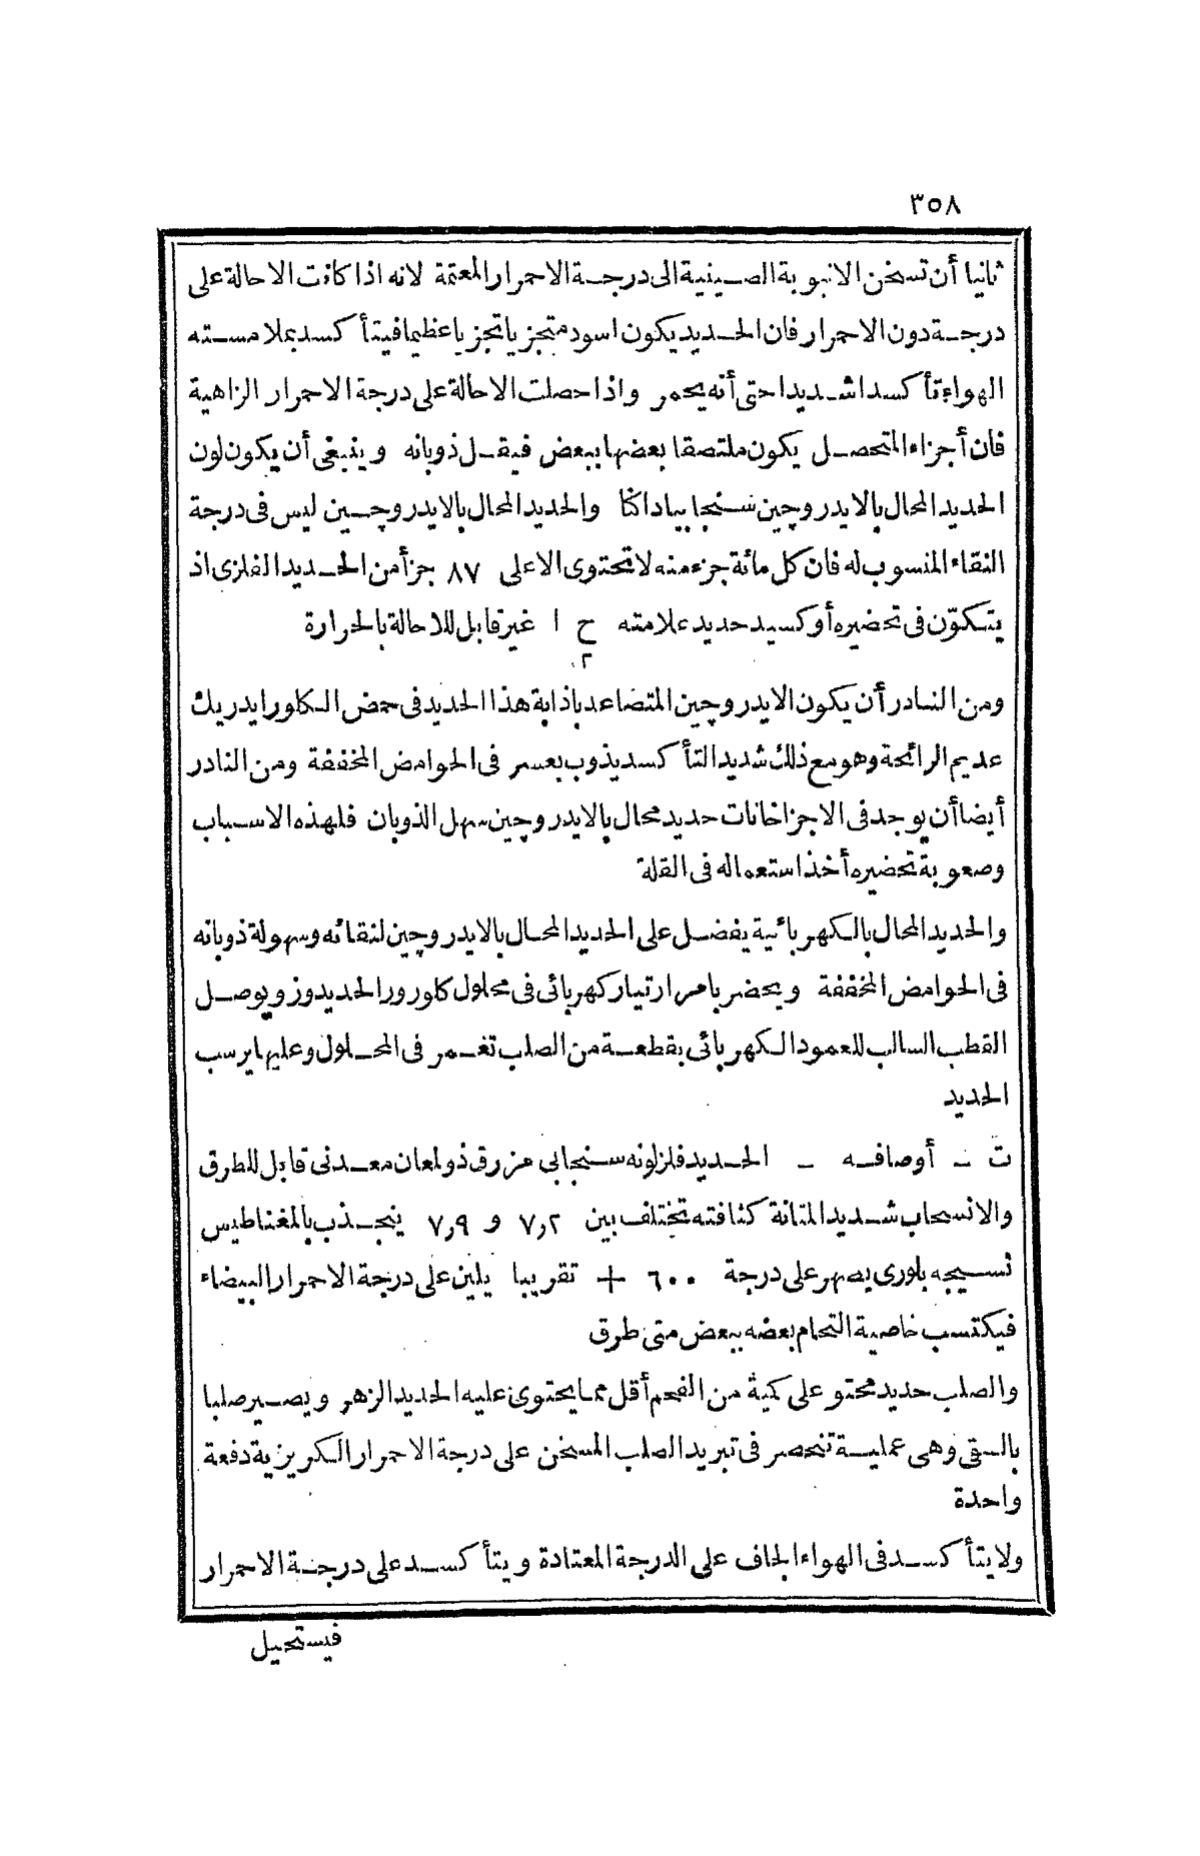 ٣٥٨
ثانيا أن تسخن الانبوبة الصينية الى درجة الاحمرار المعتمة لانه اذا كانت الاحالة على
درجة دون الاحمرار فان الحديد يكون اسود متجزيا تجزيا عظيما فيتأكسد بملامسته
الهواء تأكسدا شديدا حتى أنه يحمر واذا حصلت الاحالة على درجة الاحمرار الزاهية
فان أجزاء المتحصل يكون ملتصقا بعضها ببعض فيقل ذوبانه وينبغى أن يكون لون
الحديد المحال بالايدروچين سنجابيا داكنا والحديد المحال بالايدروچين ليس فى درجة
النقاء المنسوب له فان كل مائة جزء منه لا تحتوى الا على ٨٧ جزأ من الحديد الفلزى اذ
يتكوّن فى تحضيره أوكسيد حديد علامته ح ا غير قابل للاحالة بالحرارة
٢
ومن النادر أن يكون الايدروچين المتصاعد باذابة هذا الحديد فى حمض الكاورايدريك
عديم الرائحة وهو مع ذلك شديد التأكسد يذوب بعسر فى الحوامض المخففة ومن النادر
أيضا أن يوجد فى الاجزاخانات حديد محال بالايدروچين سهل الذوبان فلهذه الاسباب
وصعوبة تحضيره أخذ استعماله فى القلة
والحديد المحال بالكهربائية يفضل على الحديد المحال بالايدروچين لنقائه وسهولة ذوبانه
فى الحوامض المخففة ويحضر بامرار تيار كهربائى فى محلول كلورور الحديدوز ويوصل
القطب السالب للعمود الكهربائى بقطعة من الصلب تغمر فى المحلول وعليها يرسب
الحديد
ت ـ أوصافه ـ الحديد فلز لونه سنجابى مزرق ذو لمعان معدنى قابل للطرق
والانسحاب شديد المتانة كثافته تختلف بين ٧٫٢ و ٧٫٩ ينجذب بالمغناطيس
نسيجه بلورى يصهر على درجة ٦٠٠ + تقريبا يلين على درجة الاحمرار البيضاء
فيكتسب خاصية التحام بعضه ببعض متى طرق
والصلب حديد محتو على كمية من الفحم أقل مما يحتوى عليه الحديد الزهر ويصير صلبا
بالسقى وهى عملية تنحصر فى تبريد الصلب المسخن على درجة الاحمرار الكريزية دفعة
واحدة
ولا يتأكسد فى الهواء الجاف على الدرجة المعتادة ويتأكسد على درجة الاحمرار
فيستحيل